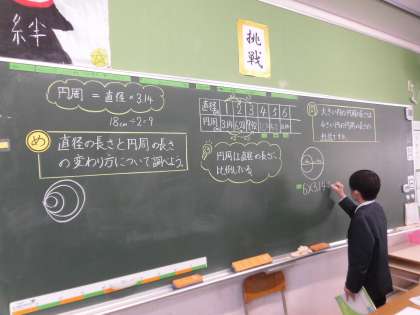 絆
挑戦
円周 = 直径 × 3.14
18cm÷2=9
め
直径の長さと円周の長さ
の変わり方について調べよう。
直径 1 2 3 4 5 6
円周 3.14 6.28 9.42
円周は直径の長さに
比例している
大きい円の円周の長さは
小さい円の円周の長さの
6×3.14